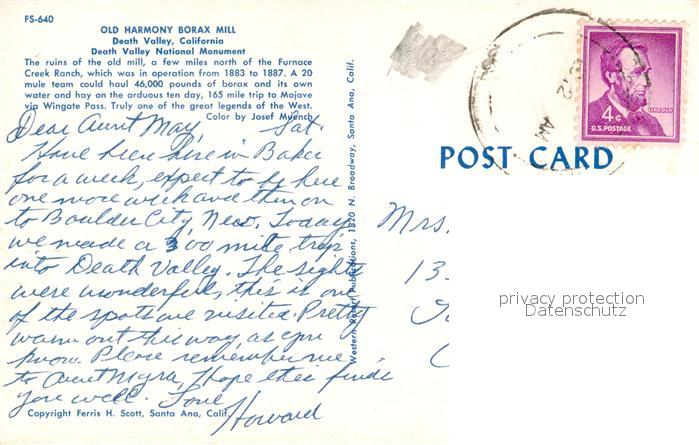 FS-640
OLD HARMONY BORAX MILL
Death Valley, California
Death Valley National Monument
The ruins of the old mill, a few miles north of the Furnace
Creek Ranch, which was in operation from 1883 to 1887. A 20
mule team could haul 46,000 pounds of borax and its own
water and hay on the orduous ten day, 165 mile trip to Mojave
via Wingate Pass. Truly one of the great legends of the West.
Color by Josef Muench
Dear Aunt May, Sat.
Have been here in Baker
for a week, expect to be here
one more week and then on
to Boulder City, Nev. Today
we made a 300 mile trip
into Death Valley. The sights
were wonderful, this is one
of the spots we visited. Pretty
warm out this way, as you
know. Please remember me
to Aunt Myra, I hope this finds
you well. Love
Howard
Copyright Ferris H. Scott, Santa Ana, Calif.
Western Resort Publications, 1820 N. Broadway, Santa Ana, Calif.
POST CARD
LINCOLN
4¢
U.S. POSTAGE
AM
12
Mrs.
13
privacy protection
Datenschutz